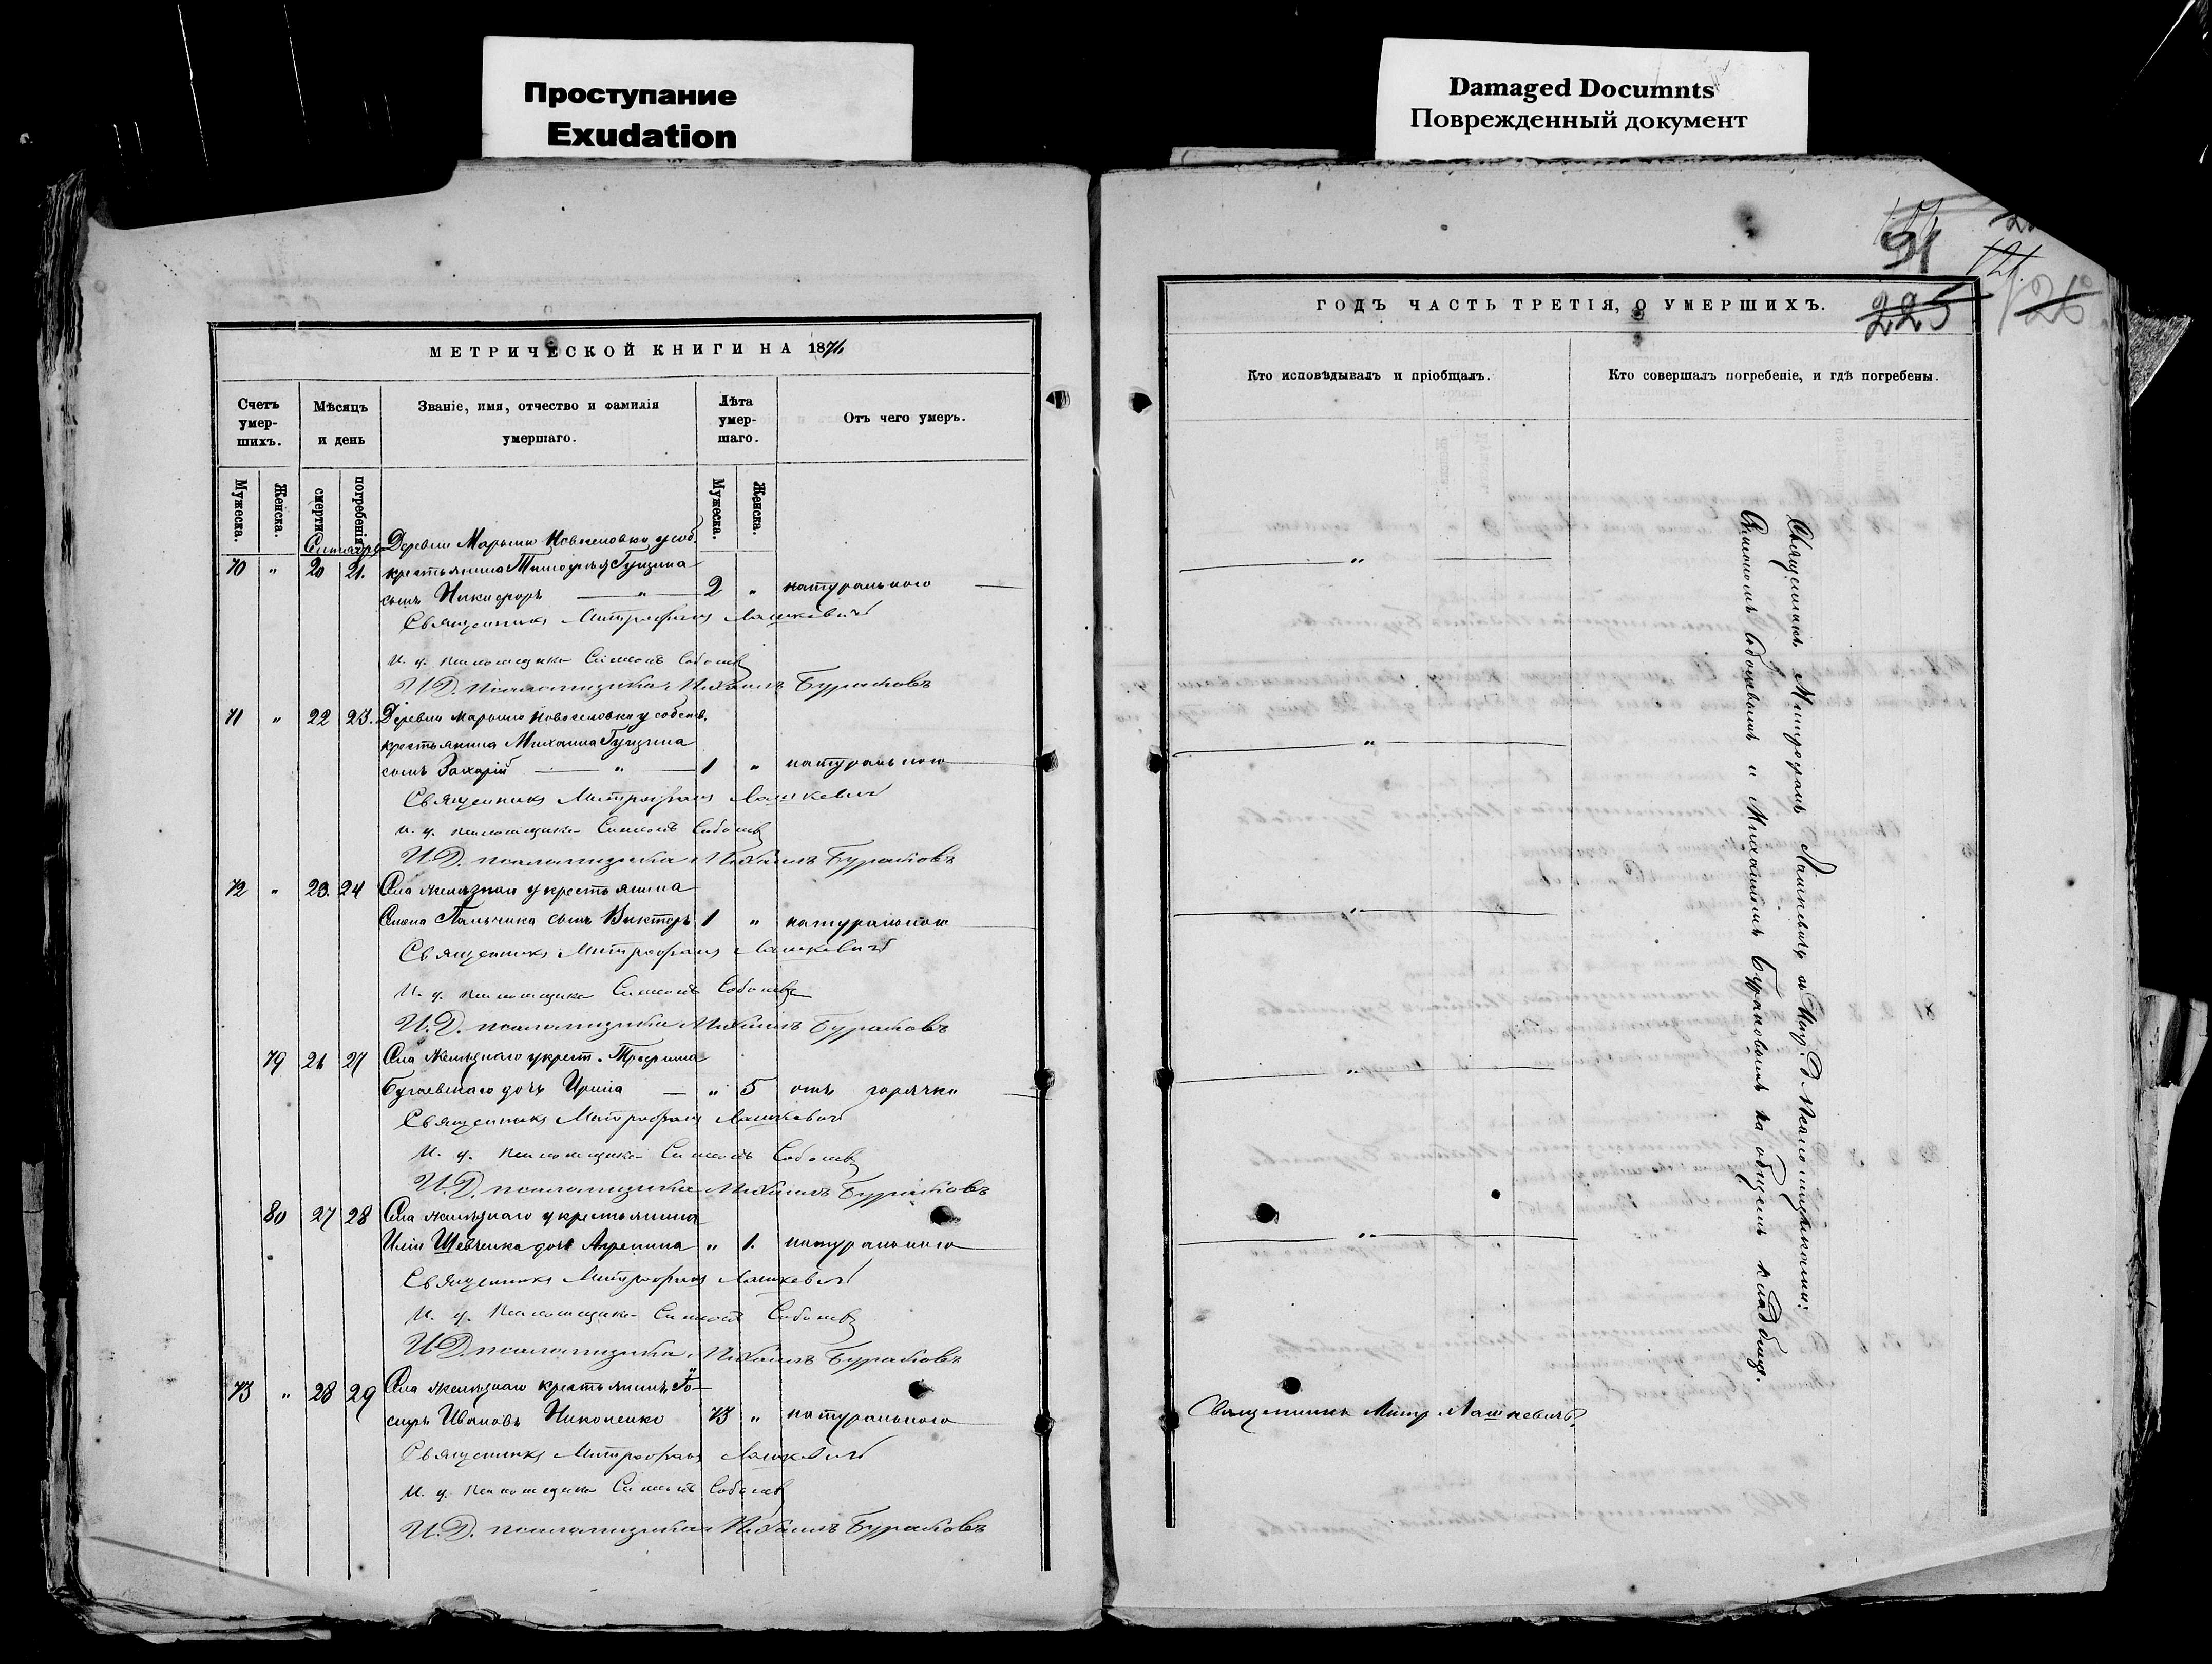 Проступание
Exudation
Damaged Documnts
Поврежденный документ
МЕТРИЧЕСКОЙ КНИГИ НА 1871
Счетъ умер-шихъ.
Мѣсяцъ и день
Званіе, имя, отчество и фамилія умершаго.
Лѣта умер-шаго.
Отъ чего умеръ.
Мужеска.
Женска.
смерти
погребенія
Мужеска.
Женска.
Сентябрь Деревни Марьино Новоселовки у соб.
70 " 20 21. крестьянина Тимофея Гунзина
сынъ Никифоръ — " — 2 " натурального
Священникъ Митрофанъ Лашкевичъ
И. д. псаломщика Симеонъ Соболевъ
И.Д. псаломщика Михаилъ Бураковъ
71 " 22 23. Деревни Марьино Новоселовки у собств.
крестьянина Михаила Гунзина
сынъ Захарій — " — 1 " натурального
Священникъ Митрофанъ Лашкевичъ
и. д. псаломщика Симеонъ Соболевъ
И.Д. псаломщика Михаилъ Бураковъ
72 " 23. 24 Села Желѣзнаго у крестьянина
Семена Пальчика сынъ Викторъ 1 " натурального
Священникъ Митрофанъ Лашкевичъ
И. д. псаломщика Симеонъ Соболевъ
И.Д. псаломщика Михаилъ Бураковъ
79 26 27 Села Желѣзнаго у крест. Трофима
дочь Ирина — " 5 отъ горячки
Священникъ Митрофанъ Лашкевичъ
И. д. псаломщика Симеонъ Соболевъ
И.Д. псаломщика Михаилъ Бураковъ
80 27 28 Села Желѣзнаго у крестьянина
Иліи Шевченка дочь Агрепина " 1. натурального
Священникъ Митрофанъ Лашкевичъ
И. д. псаломщика Симеонъ Соболевъ
И.Д. псаломщика Михаилъ Бураковъ
73 " 28 29 Села Желѣзнаго крестьянинъ Іо-
сифъ Ивановъ Николенко 73 " натурального
Священникъ Митрофанъ Лашкевичъ
И. д. псаломщика Симеонъ Соболевъ
И.Д. псаломщика Михаилъ Бураковъ
91
121.
225
126
ГОДЪ ЧАСТЬ ТРЕТІЯ, О УМЕРШИХЪ.
Кто исповѣдывалъ и пріобщалъ.
Кто совершалъ погребеніе, и гдѣ погребены.
"
"
"
"
"
Священникъ Митр Лашкевичъ.
Священникъ Митрофанъ Лашкевичъ съ Исп. Д Псаломщиками:
Симеономъ Соболевымъ и Михаиломъ Бураковымъ на общемъ кладбищѣ.